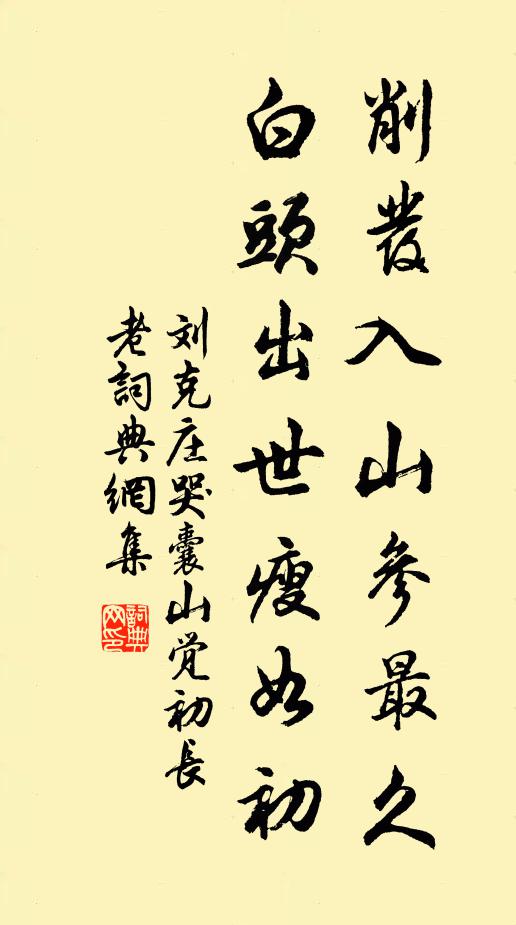 削發入山參最久
白頭出世瘦如初
刘克庄哭囊山觉初長
老詞典網集
詞典网印